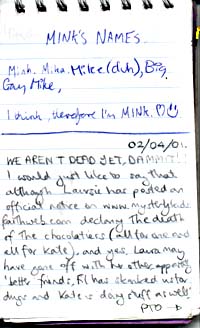 MINK'S NAMES.
Mink. Mika. Mikee (duh), Big
Gay Mike,
I think, therefore I'm MINK.
02/04/01.
WE AREN'T DEAD YET, DAMMIT!!
I would just like to say that
although Laursie has posted an
official notice on
faithweb.com declaring The death
of The chocolatiers (all for one and
all for Kate), and yes, Laura may
have gone off with her other, apparently
'better' friends, Fi has
drugs and Kate is doing stuff as well"
PTO →